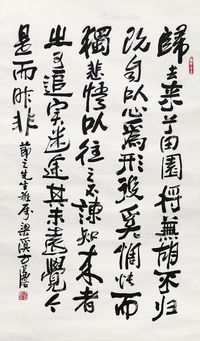 歸去来兮田園将無胡不归
既自以心為形役奚惆悵而
獨悲悟以往之不諫知来者
之可追实迷途其未遠覺今
是而昨非
先生雅属 梁溪